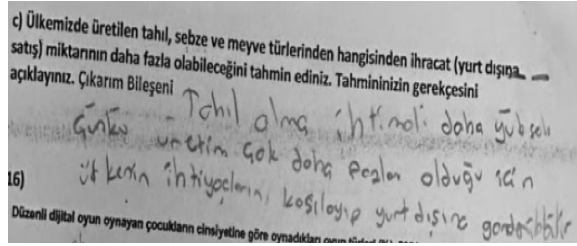 c) Ülkemizde üretilen tahıl, sebze ve meyve türlerinden hangisinden ihracat (yurt dışına
satış) miktarının daha fazla olabileceğini tahmin ediniz. Tahmininizin gerekçesini
açıklayınız. Çıkarım Bileşeni
Tahıl olma ihtimali daha yüksek
Çünkü üretim çok daha fazla olduğu için
ülkenin ihtiyaçlarını karşılayıp yurt dışına gönderebilir
16)
Düzenli dijital oyun oynayan çocukların cinsiyetine göre oynadıkları oyun türleri